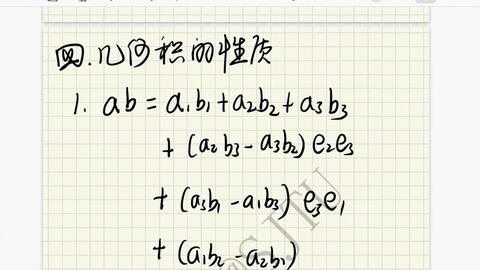 四.几何积的性质
1. ab = a₁b₁+a₂b₂+a₃b₃
+ (a₂b₃-a₃b₂) e₂e₃
+ (a₃b₁-a₁b₃) e₃e₁
+ (a₁b₂-a₂b₁)
@SJTU